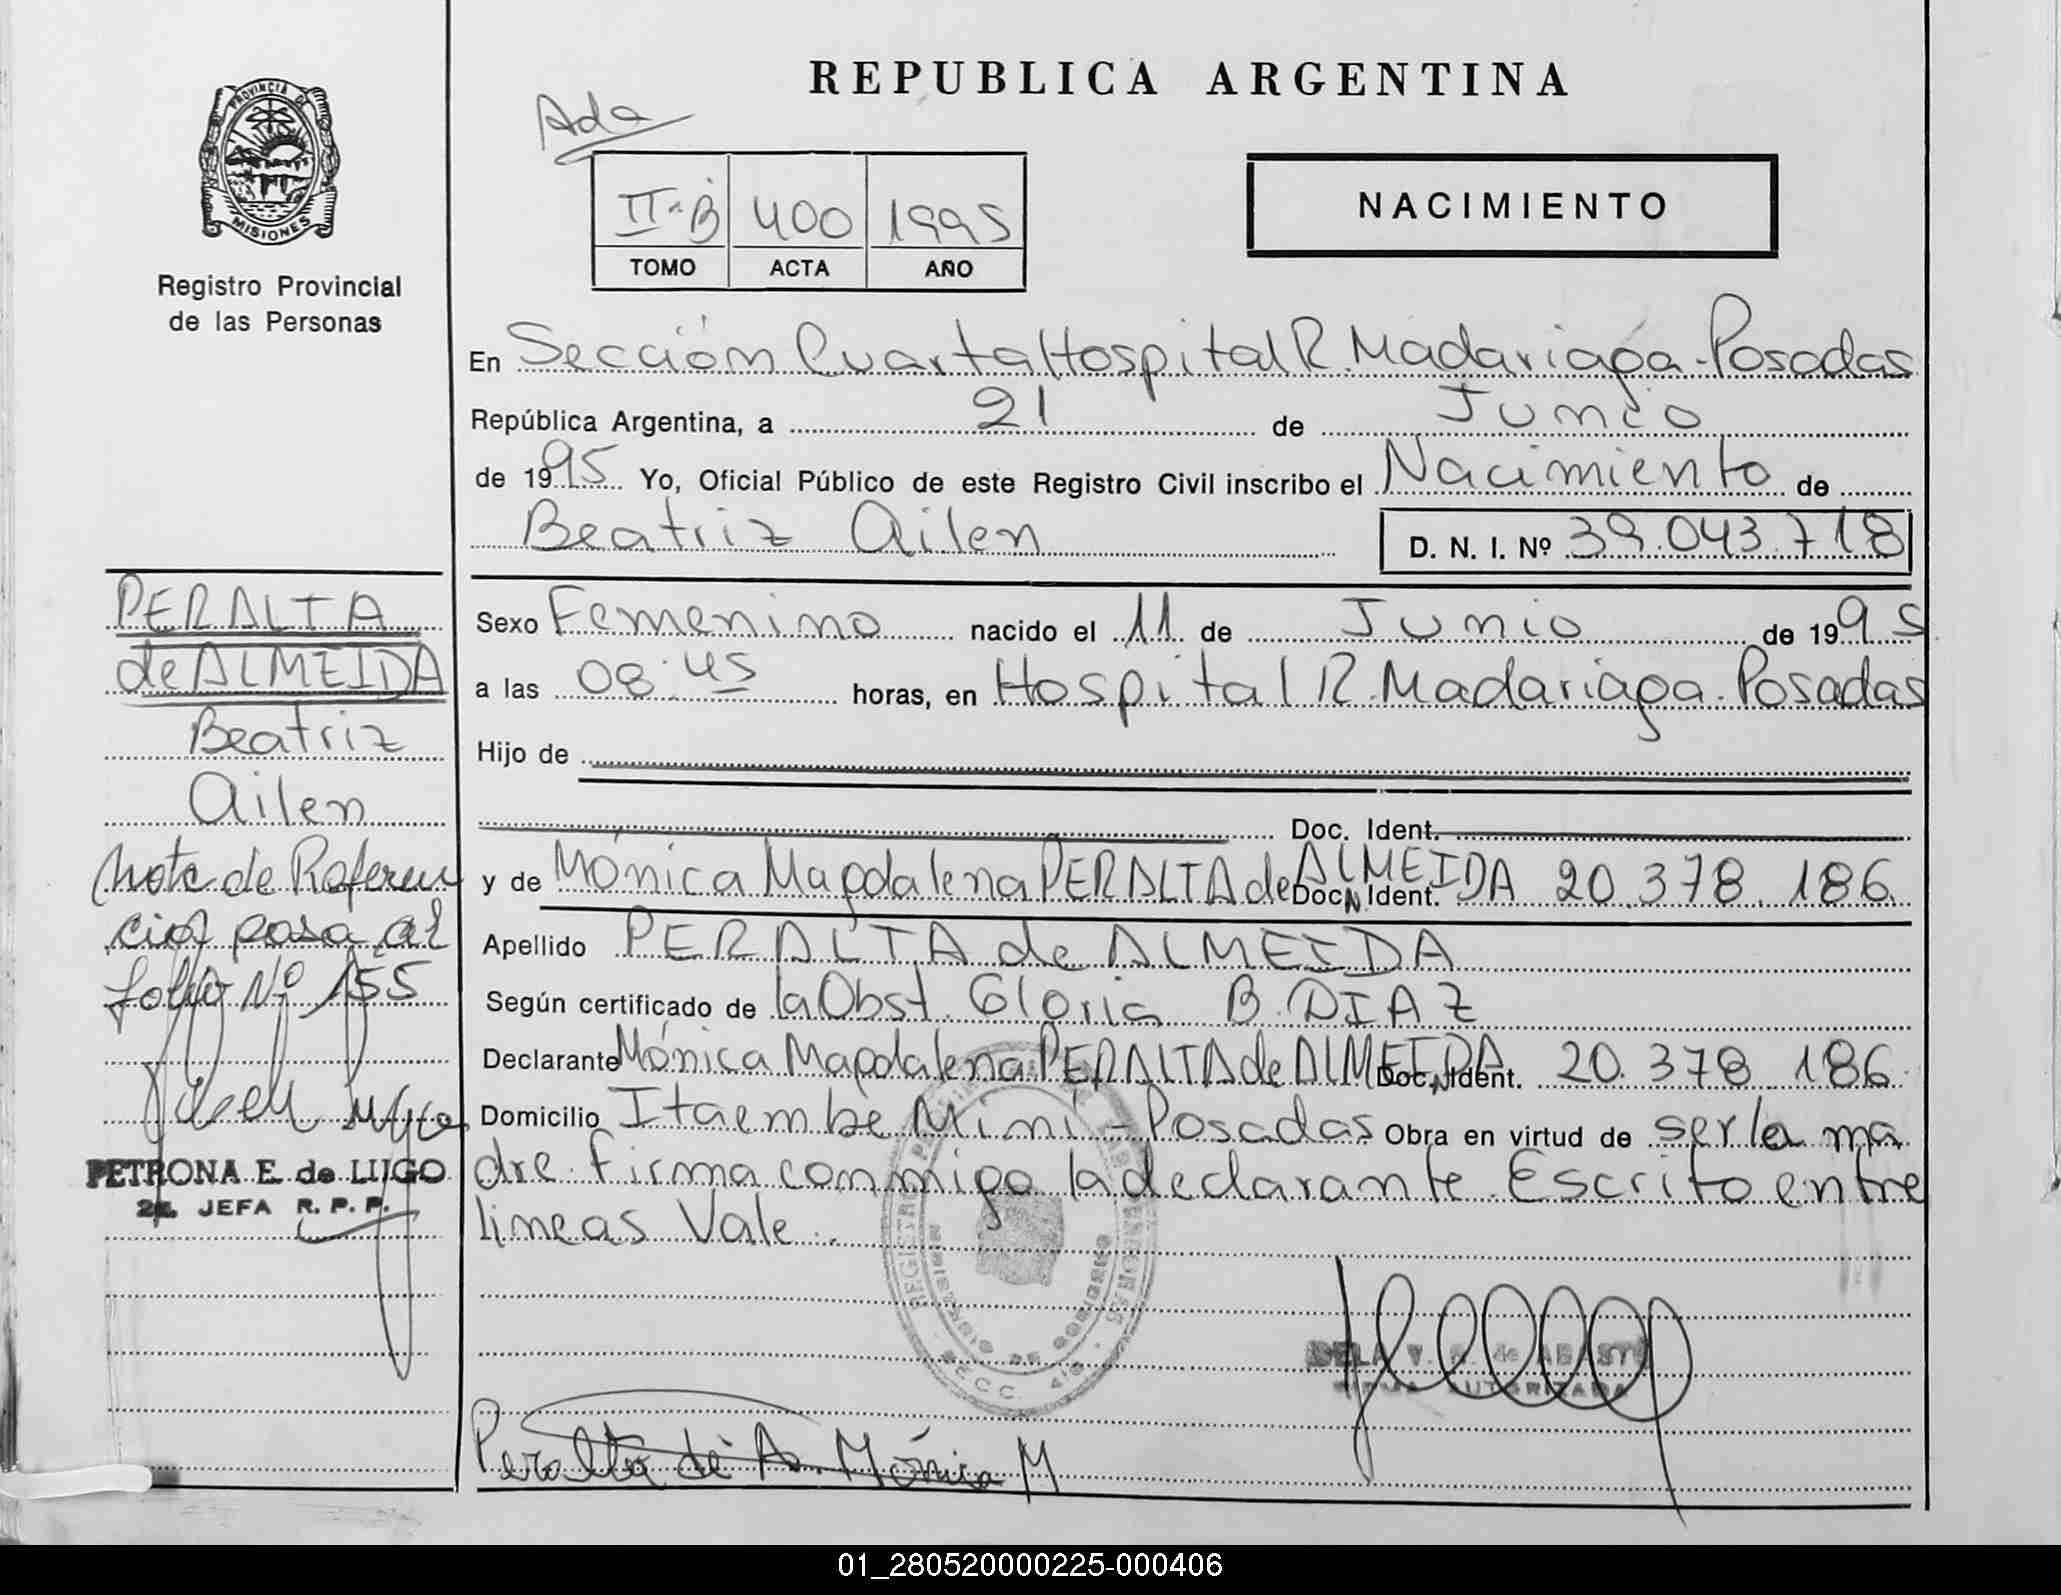 REPUBLICA ARGENTINA
Ada
PROVINCIA DE
MISIONES
Registro Provincial
de las Personas
II-B 400 1995
TOMO ACTA AÑO
NACIMIENTO
En Sección Cuarta Hospital R. Madariaga - Posadas
República Argentina, a 21 de Junio
de 1995 Yo, Oficial Público de este Registro Civil inscribo el Nacimiento de
Beatriz Ailen D. N. I. Nº 39.043.718
PERALTA
de ALMEIDA
Beatriz
Ailen
Nota de Referen
cia pasa al
folio Nº 155
PETRONA E. de LUGO
2a. JEFA R. P. P.
Sexo Femenino nacido el 11 de Junio de 1995
a las 08:45 horas, en Hospital R. Madariaga. Posadas
Hijo de
Doc. Ident.
y de Mónica Magdalena PERALTA de ALMEIDA Doc. N Ident. 20.378.186
Apellido PERALTA de ALMEIDA
Según certificado de la Obst. Gloria B. DIAZ
Declarante Mónica Magdalena PERALTA de ALMEIDA Doc. N Ident. 20.378.186
Domicilio Itaembe Miní - Posadas Obra en virtud de ser la ma
dre. Firma conmigo la declarante. Escrito entre
lineas Vale.
SECC. 4ta.
DELA V. de
FIRMA AUTORIZADA
Peralta de A. Mónica M
01_280520000225-000406